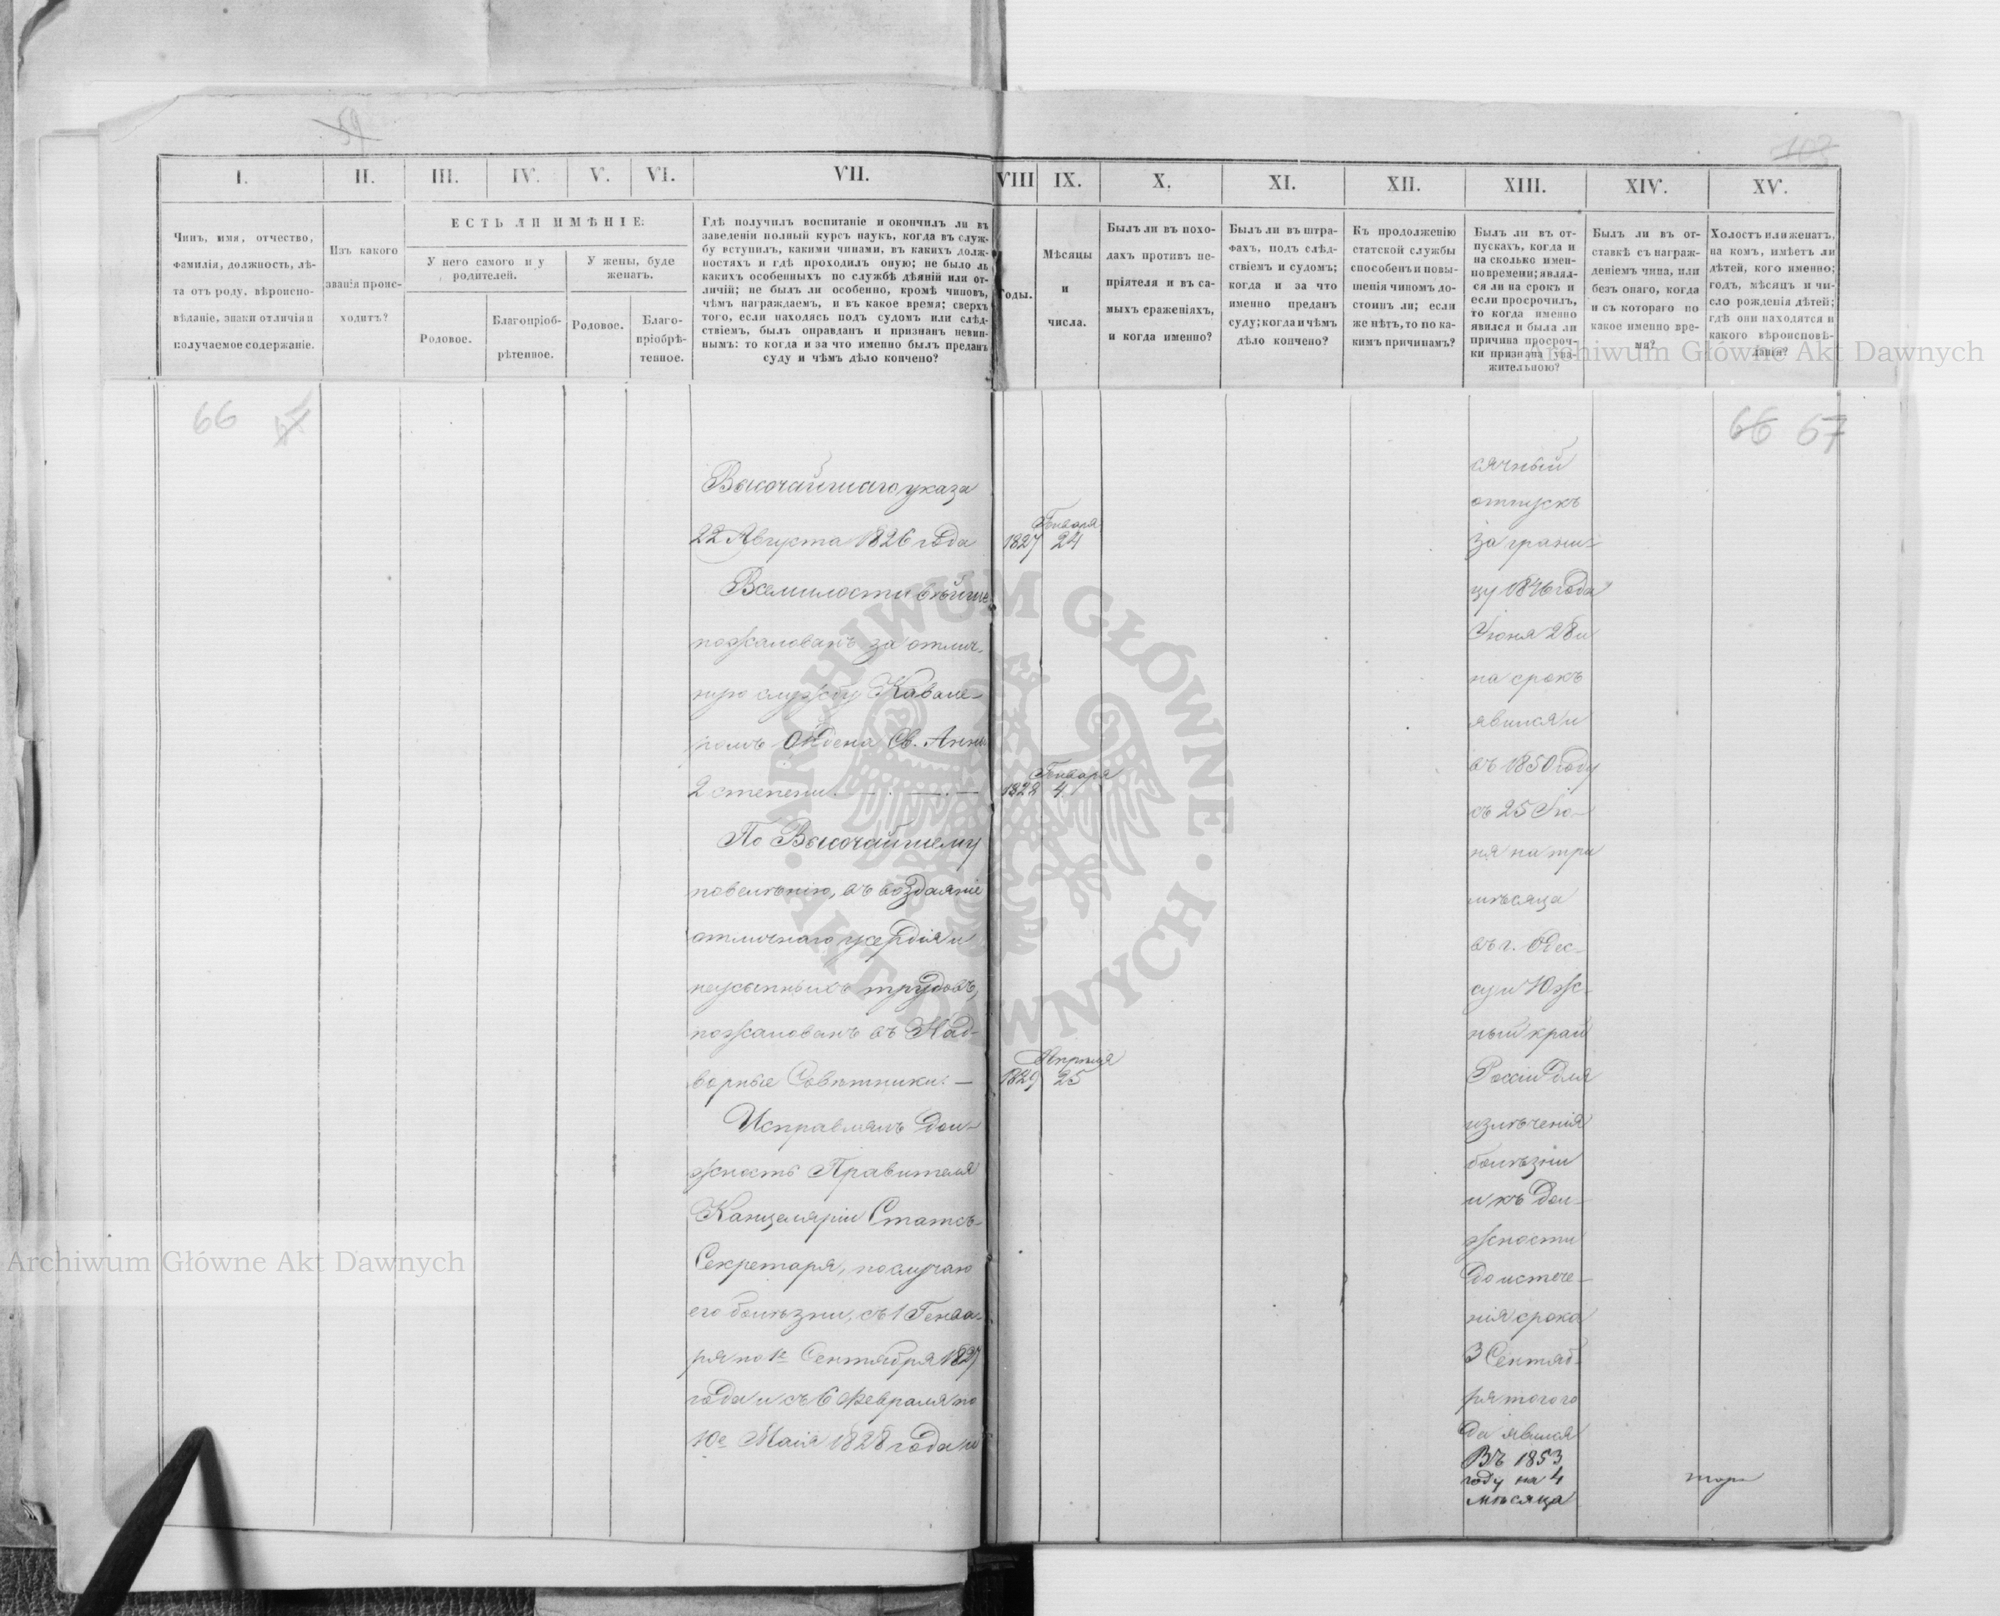 59
103
I.
II.
III.
IV.
V.
VI.
VII.
VIII
IX.
X.
XI.
XII.
XIII.
XIV.
XV.
Чинъ, имя, отчество,
фамилія, должность, лѣ-
та отъ роду, вѣроиспо-
вѣданіе, знаки отличія и
получаемое содержаніе.
Изъ какого
званія проис-
ходитъ?
ЕСТЬ ЛИ ИМѢНІЕ:
У него самого и у
родителей.
У жены, буде
женатъ.
Родовое.
Благопріоб-
рѣтенное.
Родовое.
Благо-
пріобрѣ-
тенное.
Гдѣ получилъ воспитаніе и окончилъ ли въ
заведеніи полный курсъ наукъ, когда въ служ-
бу вступилъ, какими чинами, въ какихъ долж-
ностяхъ и гдѣ проходилъ оную; не было ль
какихъ особенныхъ по службѣ дѣяній или от-
личій; не былъ ли особенно, кромѣ чиновъ,
чѣмъ награждаемъ, и въ какое время; сверхъ
того, если находясь подъ судомъ или слѣд-
ствіемъ, былъ оправданъ и признанъ невин-
нымъ: то когда и за что именно былъ преданъ
суду и чѣмъ дѣло кончено?
Годы.
Мѣсяцы
и
числа.
Былъ ли въ похо-
дахъ противъ не-
пріятеля и въ са-
мыхъ сраженіяхъ,
и когда именно?
Былъ ли въ штра-
фахъ, подъ слѣд-
ствіемъ и судомъ;
когда и за что
именно преданъ
суду; когда и чѣмъ
дѣло кончено?
Къ продолженію
статской службы
способенъ и повы-
шенія чиномъ до-
стоинъ ли; если
же нѣтъ, то по ка-
кимъ причинамъ?
Былъ ли въ от-
пускахъ, когда и
на сколько имен-
но времени; являл-
ся ли на срокъ и
если просрочилъ,
то когда именно
явился и была ли
причина просроч-
ки признана ува-
жительною?
Былъ ли въ от-
ставкѣ съ награж-
деніемъ чина, или
безъ онаго, когда
и съ котораго по
какое именно вре-
мя?
Холостъ или женатъ,
на комъ, имѣетъ ли
дѣтей, кого именно;
годъ, мѣсяцъ и чи-
сло рожденія дѣтей;
гдѣ они находятся и
какого вѣроисповѣ-
данія?
Archiwum Główne Akt Dawnych
66
66 67
Высочайшаго указа
22 Августа 1826 года
1827
Января
24
Всемилостивѣйше
пожалованъ за отлич-
ную службу Кавале-
ромъ Ордена Св. Анны
2 степени. — . — . —
1828
Января
4
По Высочайшему
повелѣнію, въ воздаяніе
отличнаго усердія и
неусыпныхъ трудовъ,
пожалованъ въ Над-
ворные Совѣтники: —
1829
Апрѣля
25
Исправлялъ дол-
жность Правителя
Канцеляріи Статсъ-
Секретаря, по случаю
его болѣзни, съ 1 Генва-
ря по 1е Сентября 1827
года и съ 6 Февраля по
10е Маія 1828 года и
сячный
отпускъ
за грани-
цу 1846 года
Іюня 28 и
на срокъ
явился и
въ 1850 году
съ 25 Ію-
ня на три
мѣсяца
въ г. Одес-
су и Юж-
ный край
Россіи для
излѣченія
болѣзни
и къ дол-
жности
до истече-
нія срока
3 Сентяб-
ря того го
да явился
Въ 1853
году на 4
мѣсяца
Archiwum Główne Akt Dawnych
ARCHIWUM GŁÓWNE · AKT DAWNYCH ·